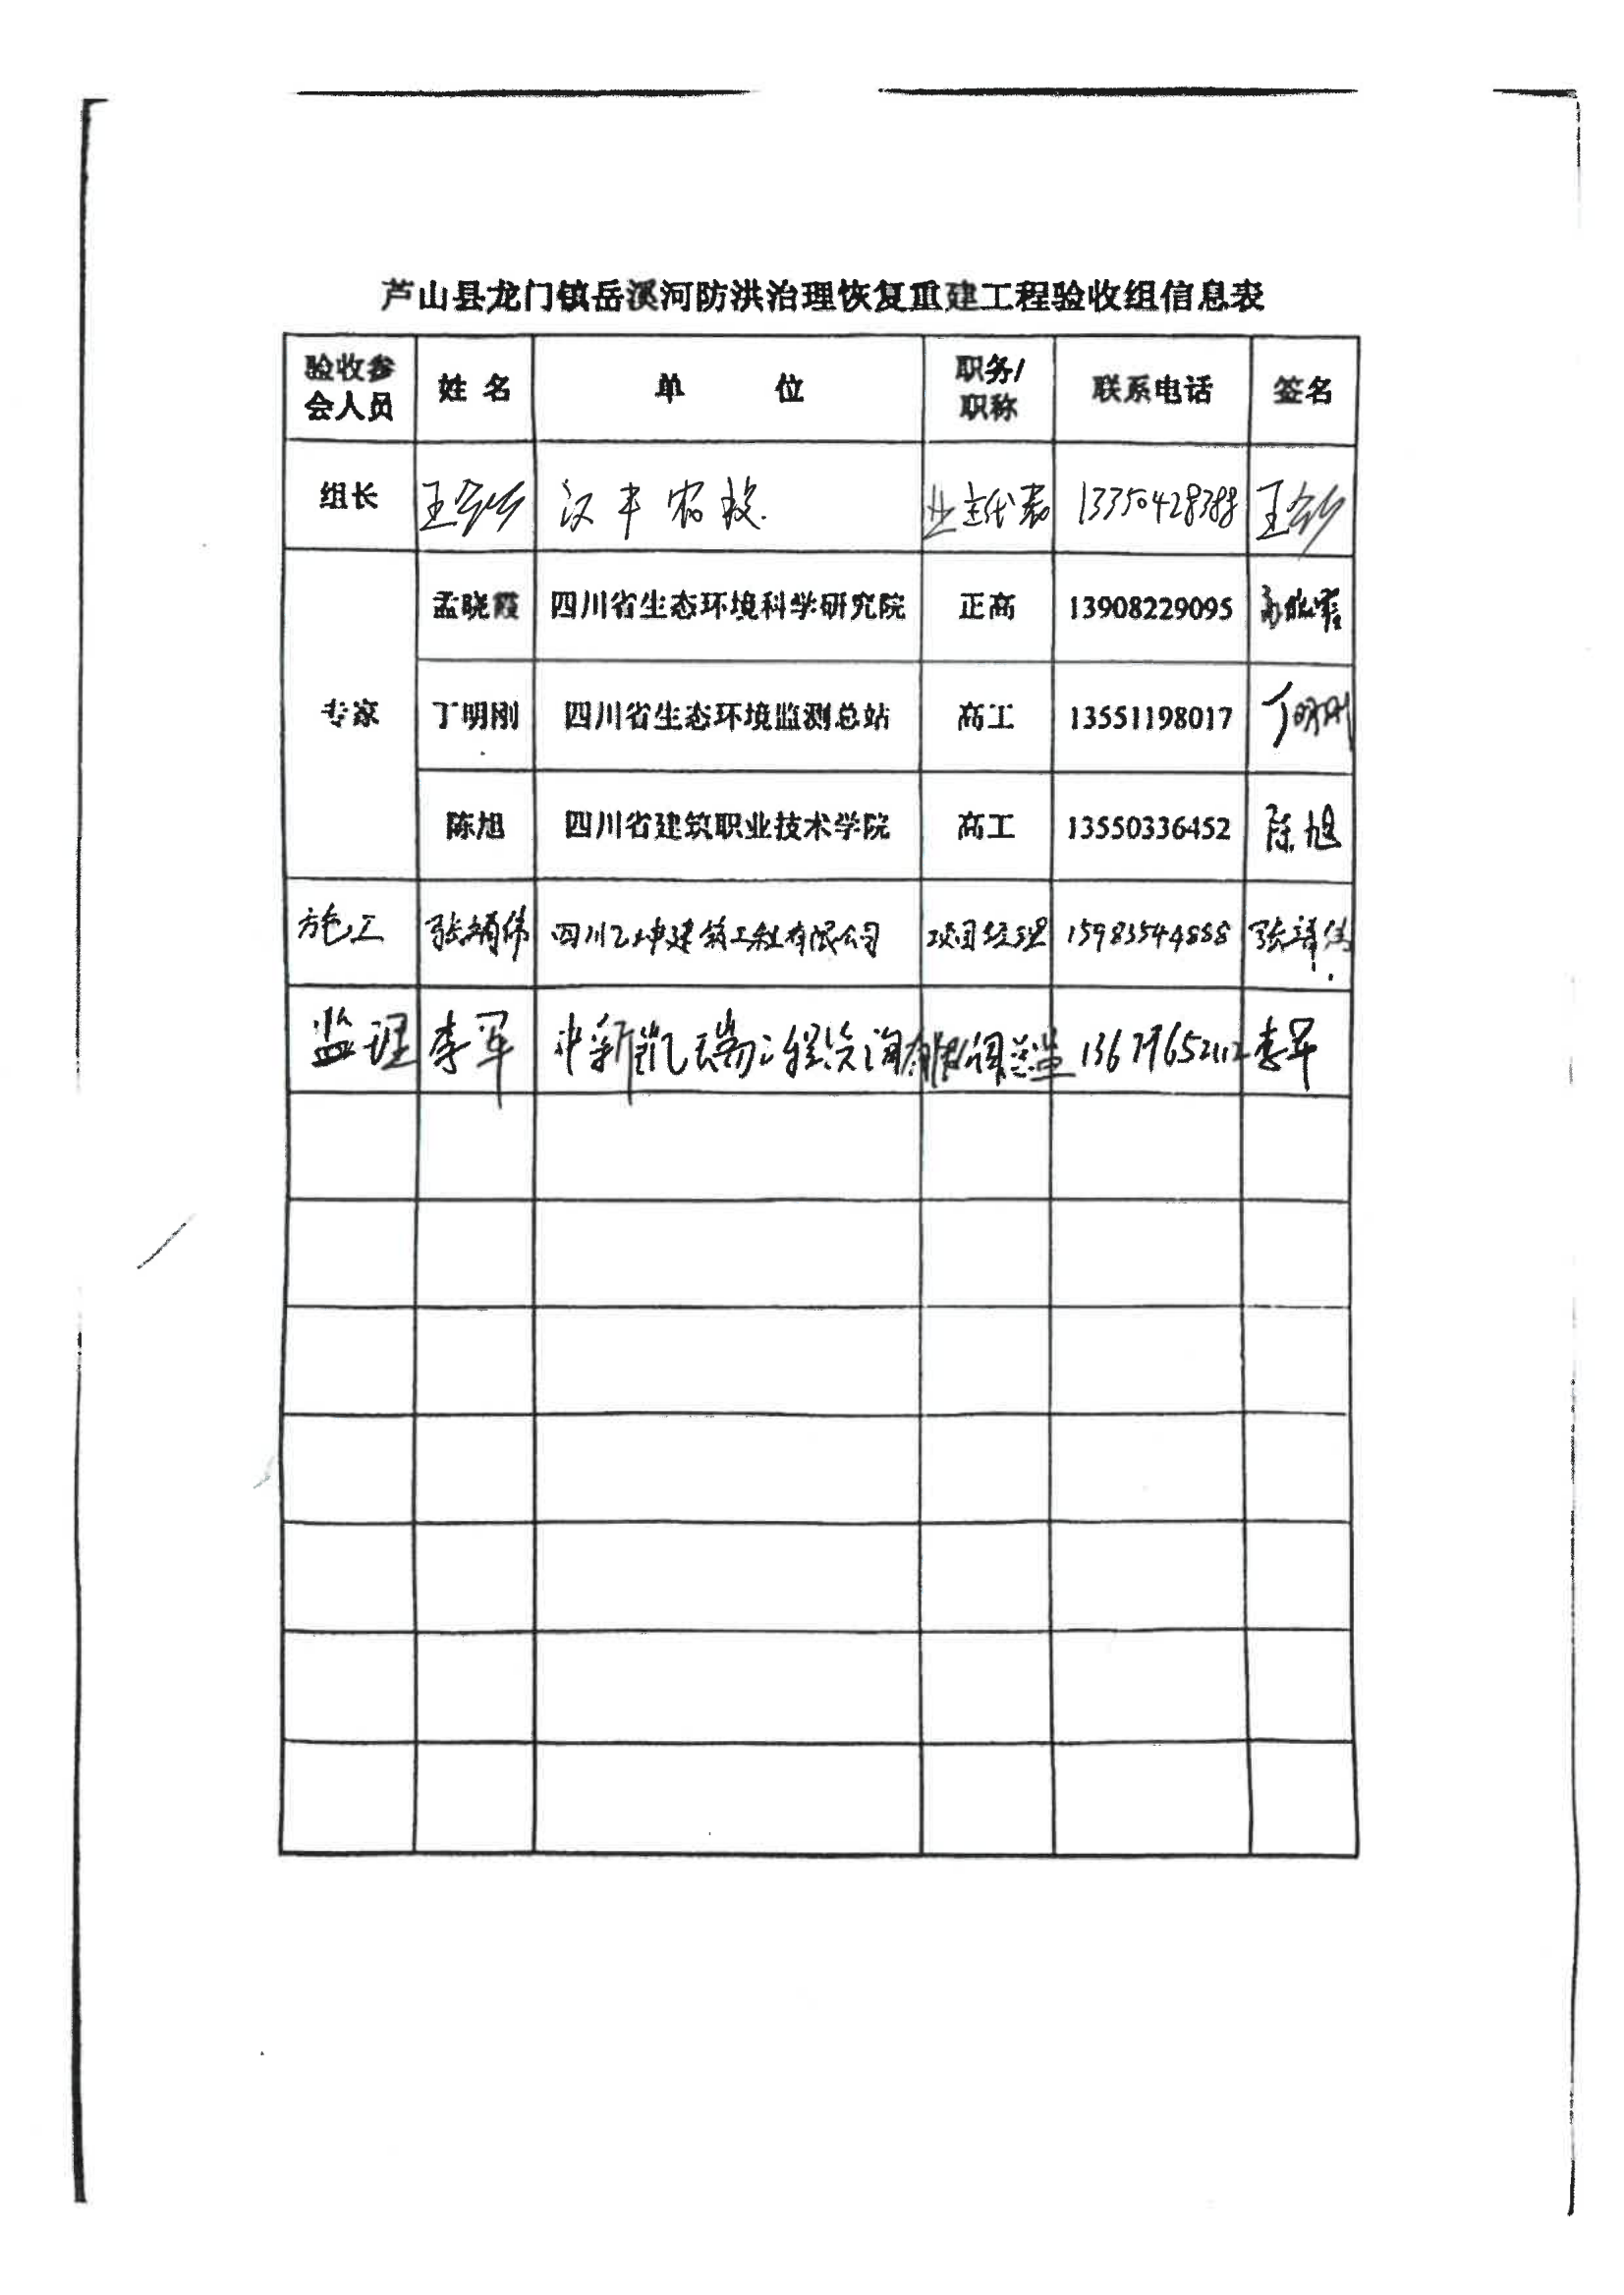 芦山县龙门镇岳溪河防洪治理恢复重建工程验收组信息表
验收参会人员 姓 名 单 位 职务/职称 联系电话 签名
组长 王 汉丰农投 业主代表 13350428388 王
专家
孟晓霞 四川省生态环境科学研究院 正高 13908229095 孟晓霞
丁明刚 四川省生态环境监测总站 高工 13551198017 丁明刚
陈旭 四川省建筑职业技术学院 高工 13550336452 陈旭
施工 张 伟 四川乙坤建筑工程有限公司 项目经理 15983544888 张 伟
监理 李军 中新凯瑞工程咨询有限公司 李军